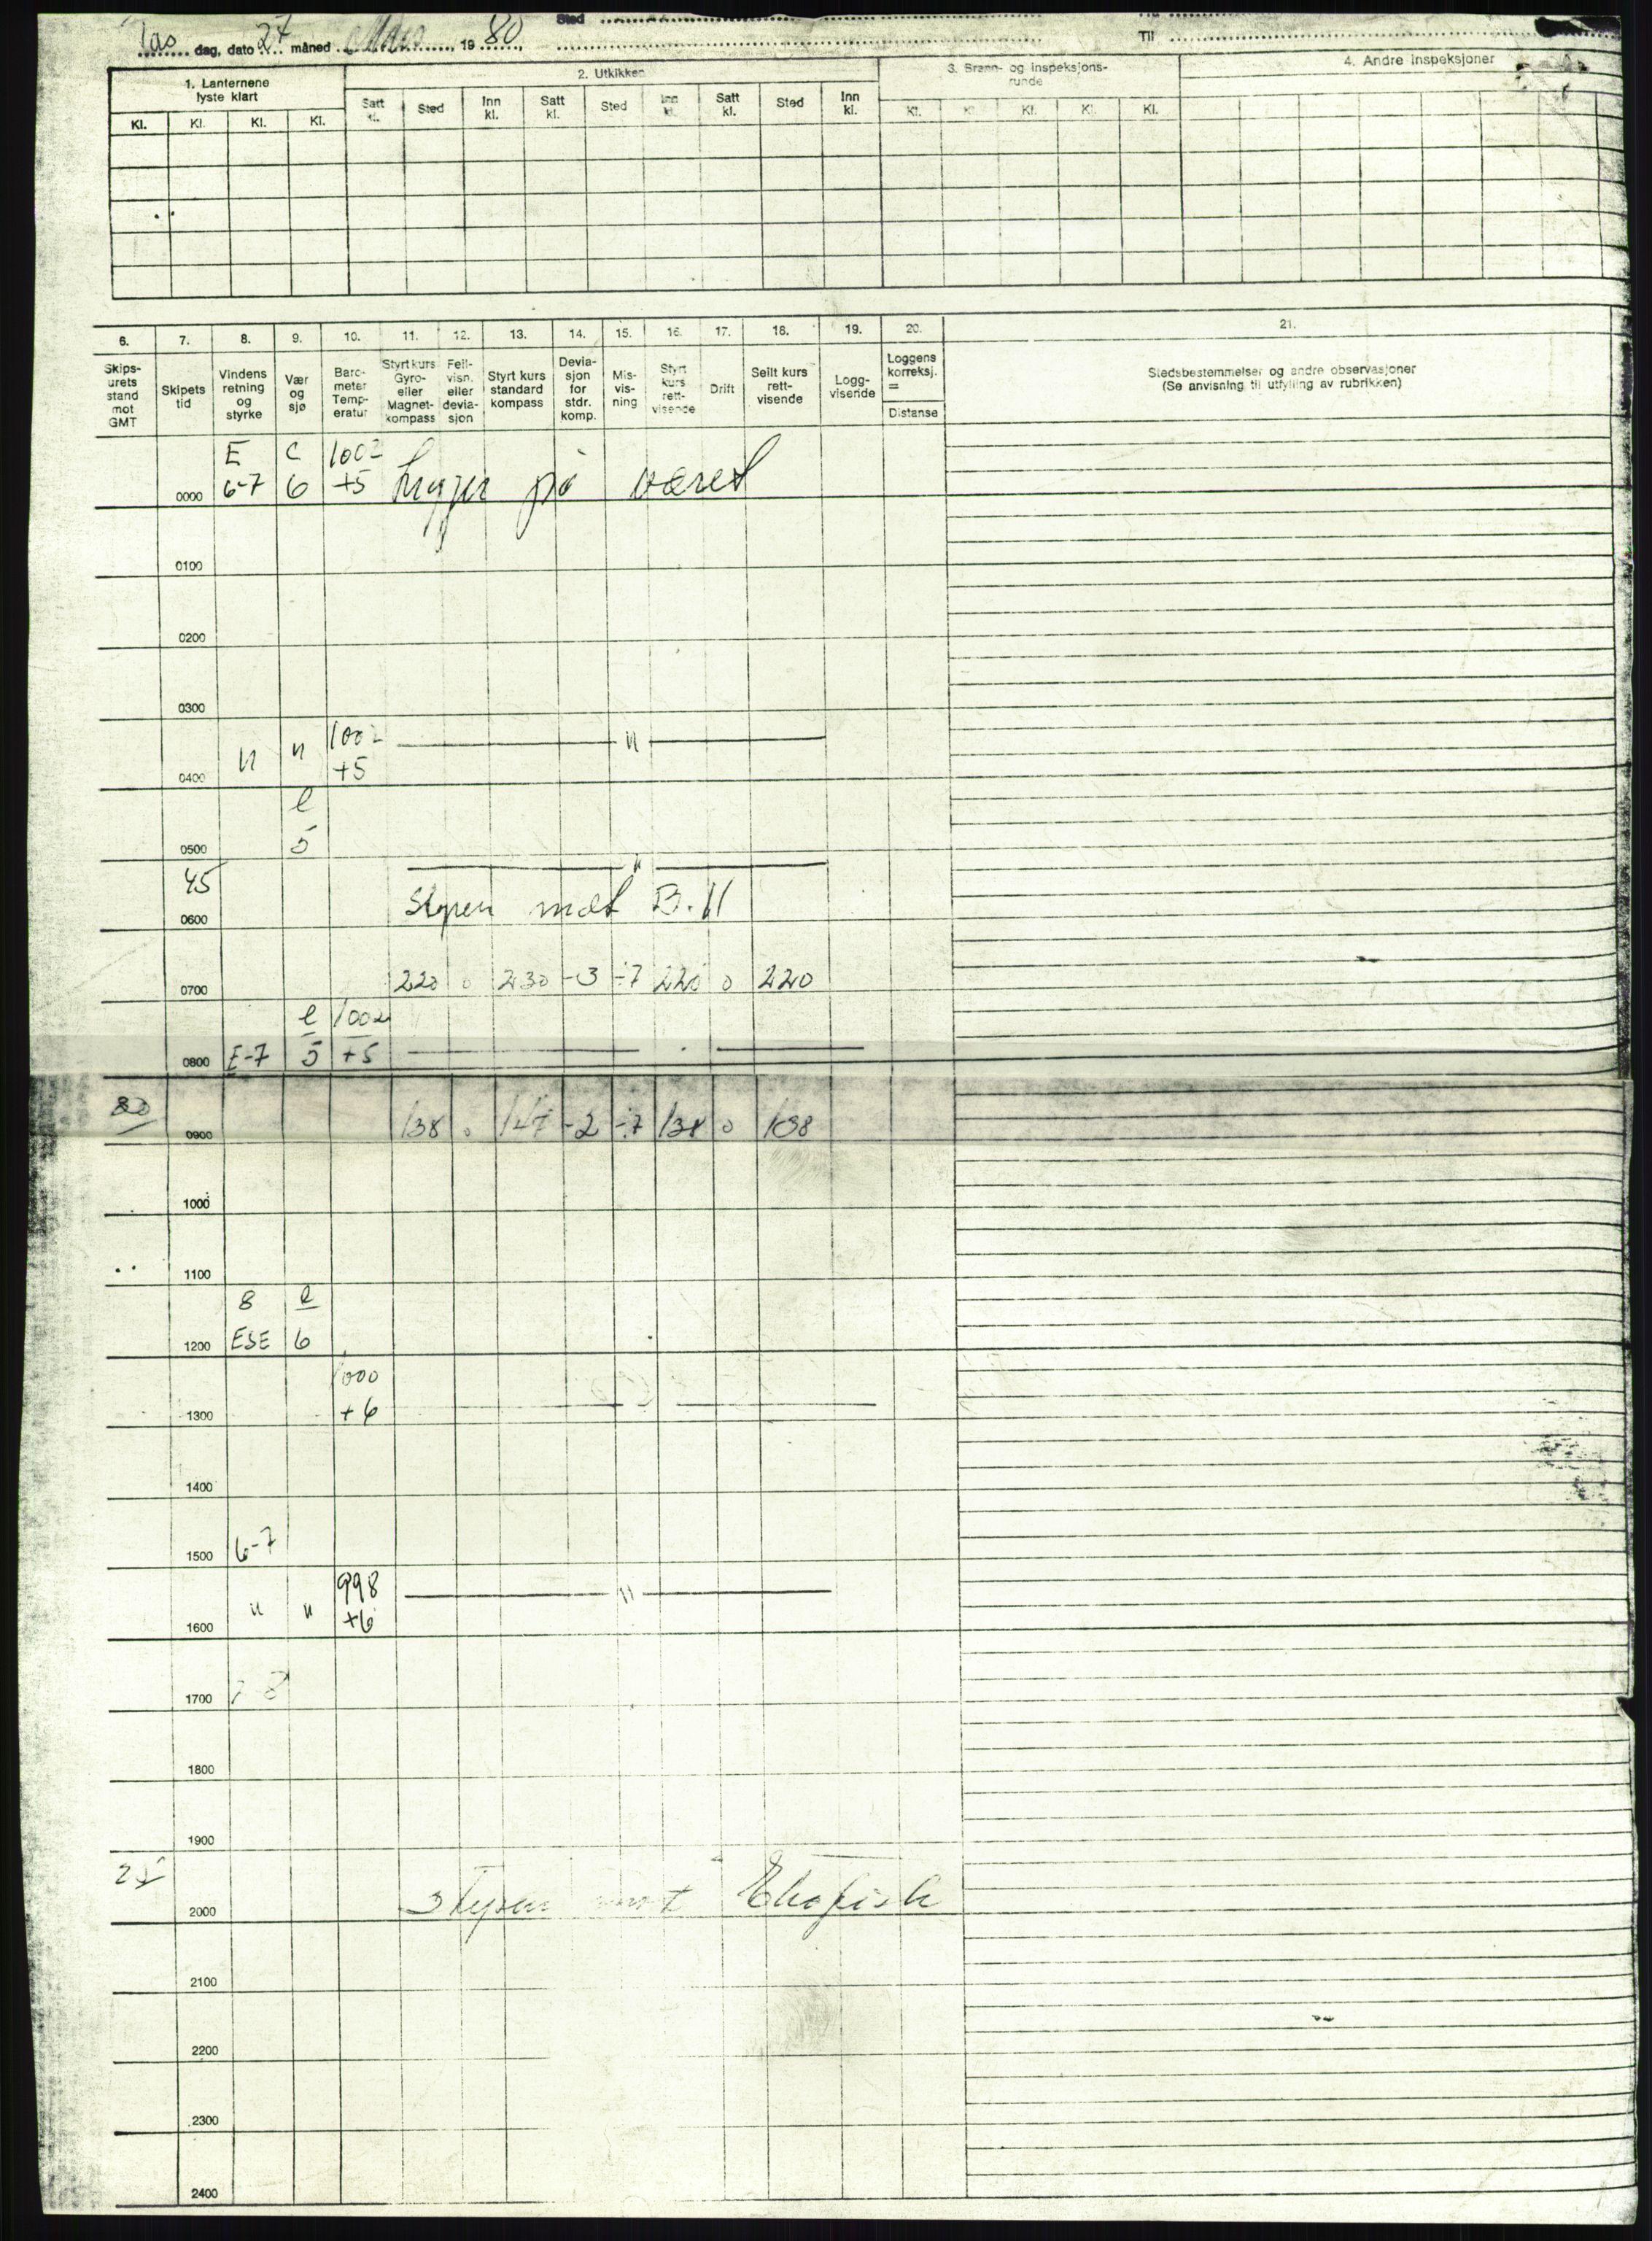 Sted
dag, dato 27 måned Mars 1980,
Til
1. Lanternene lyste klart
2. Utkikken
3. Brann- og inspeksjons-runde
4. Andre inspeksjoner
Kl. Kl. Kl. Kl. Satt kl. Sted Inn kl. Satt kl. Sted Inn kl. Satt kl. Sted Inn kl. Kl. Kl. Kl. Kl. Kl.
6. 7. 8. 9. 10. 11. 12. 13. 14. 15. 16. 17. 18. 19. 20. 21.
Skips-urets stand mot GMT
Skipets tid
Vindens retning og styrke
Vær og sjø
Baro-meter Temp-eratur
Styrt kurs Gyro- eller Magnet-kompass
Feil-visn. eller devia-sjon
Styrt kurs standard kompass
Devia-sjon for stdr. komp.
Mis-vis-ning
Styrt kurs rett-visende
Drift
Seilt kurs rett-visende
Logg-visende
Loggens korreksj. =
Distanse
Stedsbestemmelser og andre observasjoner
(Se anvisning til utfylling av rubrikken)
E C 1002
0000 6-7 6 +5 Ligger på været
0100
0200
0300
1002
0400 " " +5 "
e
0500 5 "
45 Styrer mot B.11
0600
0700 220 0 230 -3 -7 220 0 220
e 1002
0800 E-7 5 +5
0900 138 0 147 -2 -7 138 0 138
1000
1100
8 e
1200 ESE 6
1000
1300 +6
1400
1500 6-7
998 "
1600 " " +6
1700 7-8
1800
1900
2000 Styrer mot Ekofisk
2100
2200
2300
2400